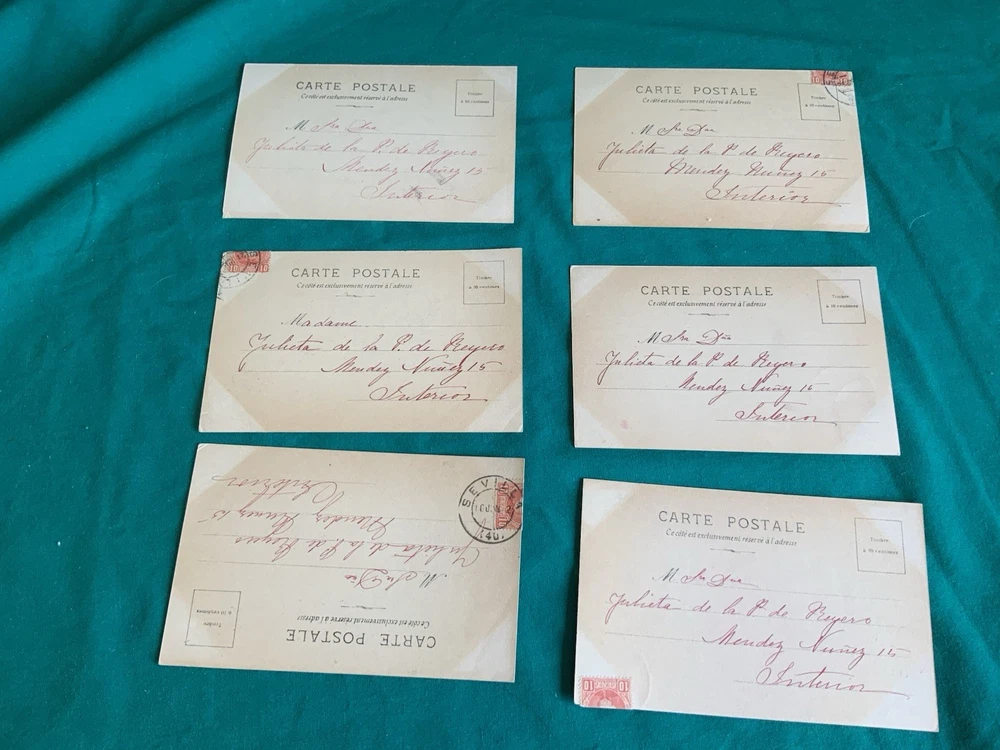 CARTE POSTALE
Ce côté est exclusivement réservé à l'adresse
Timbre
à 10 centimes
M Sra Dña
Julieta de la P. de Reyero
Mendez Nuñez 15
Interior
CARTE POSTALE
Ce côté est exclusivement réservé à l'adresse
Timbre
à 10 centimes
10
M Sra Dña
Julieta de la P. de Reyero
Mendez Nuñez 15
Interior
10 10
CARTE POSTALE
Ce côté est exclusivement réservé à l'adresse
Timbre
à 10 centimes
Madame
Julieta de la P. de Reyero
Mendez Nuñez 15
Interior
CARTE POSTALE
Ce côté est exclusivement réservé à l'adresse
Timbre
à 10 centimes
M Sra Dña
Julieta de la P. de Reyero
Mendez Nuñez 15
Interior
CARTE POSTALE
Ce côté est exclusivement réservé à l'adresse
Timbre
à 10 centimes
M Sra Dña
Julieta de la P. de Reyero
Mendez Nunez 15
Interior
SEVILLA
10
CARTE POSTALE
Ce côté est exclusivement réservé à l'adresse
Timbre
à 10 centimes
M Sra Dña
Julieta de la P. de Reyero
Mendez Nuñez 15
Interior
10 10